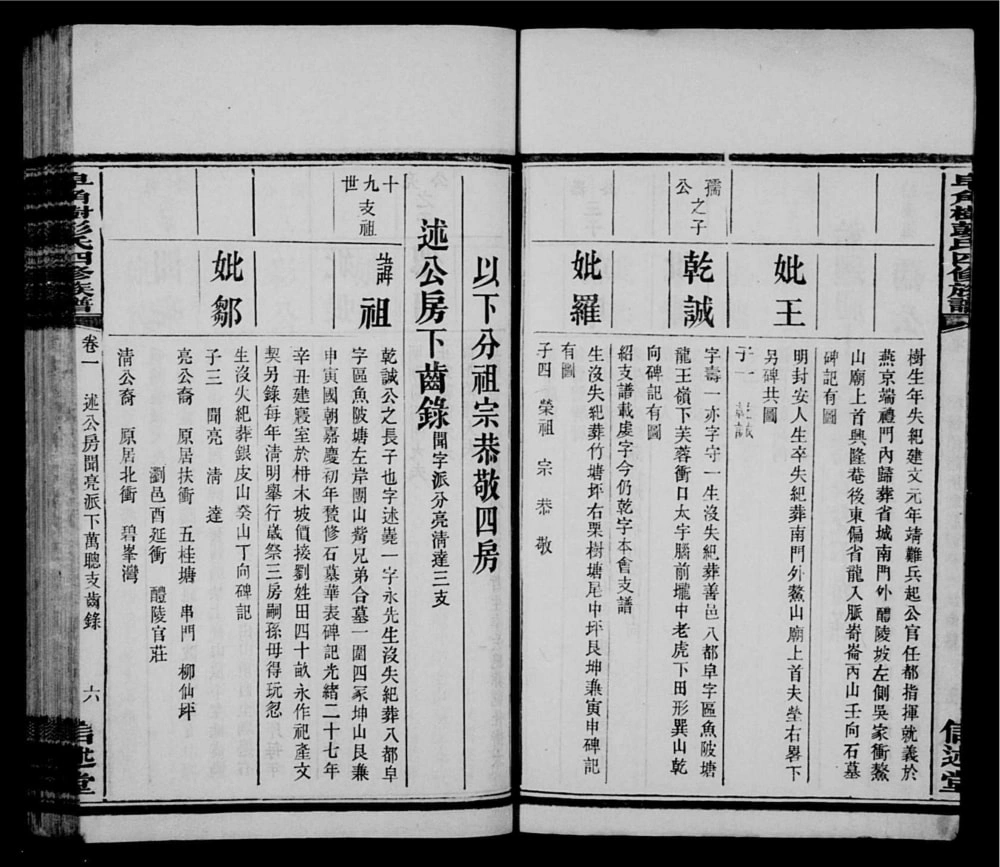 皁角樹彭氏四修族譜
信述堂
樹生年失紀建文元年靖難兵起公官任都指揮就義於
燕京端禮門內歸葬省城南門外醴陵坡左側吳家衝鰲
山廟上首興隆菴後東偏省龍入脈嵜崙丙山壬向石墓
碑記有圖
妣王
明封安人生卒失紀葬南門外鰲山廟上首夫塋右畧下
另碑共圖
子一 乾誠
孺之子
公
乾誠
字壽一亦字守一生沒失紀葬善邑八都阜字區魚陂塘
龍王嶺下芙蓉衝口太字腦前壠中老虎下田形巽山乾
向碑記有圖
紹支譜載虔字今仍乾字本會支譜
妣羅
生沒失紀葬竹塘坪右栗樹塘尾中坪艮坤兼寅申碑記
有圖
子四 榮祖 宗 恭 敬
以下分祖宗恭敬四房
述公房下齒錄聞字派分亮清達三支
十九世
支祖
諱祖
乾誠公之長子也字述嶤一字永先生沒失紀葬八都阜
字區魚陂塘左岸團山嘴兄弟合墓一圍四冢坤山艮兼
申寅國朝嘉慶初年甃修石墓華表碑記光緒二十七年
辛丑建寢室於枏木坡價接劉姓田四十畝永作祀產文
契另錄每年清明舉行歲祭三房嗣孫毋得玩忽
妣鄒
生沒失紀葬銀皮山癸山丁向碑記
子三 聞亮 清 達
亮公裔 原居扶衝 五桂塘 串門 柳仙坪
瀏邑酉延衝 醴陵官莊
清公裔 原居北衝 碧峯灣
皁角樹彭氏四修族譜
卷一 述公房聞亮派下萬聰支齒錄 六
信述堂